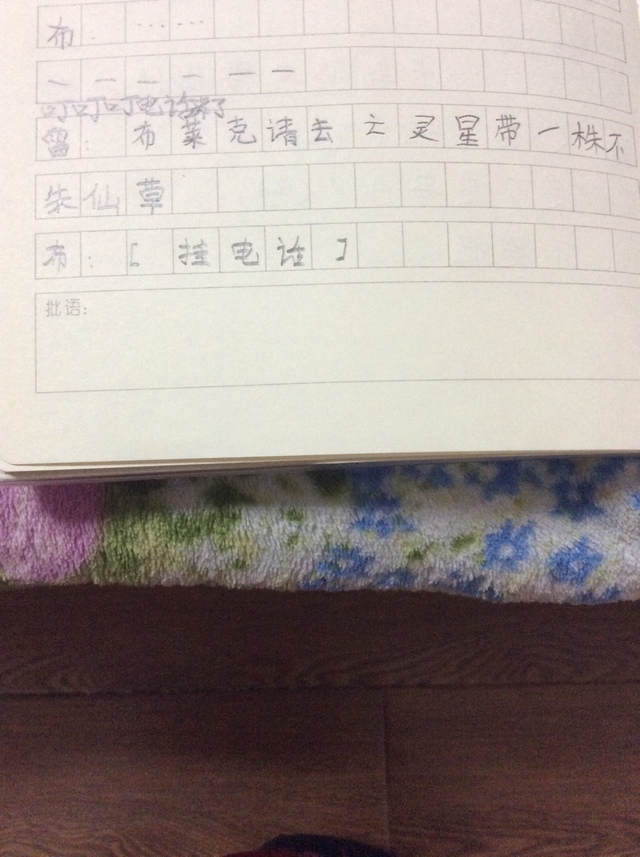 布：……
一 一 一 一 一 一
叮叮叮电话来了
：布莱克请去亡灵星带一株不
朱仙草
布：［挂电话］
批语：